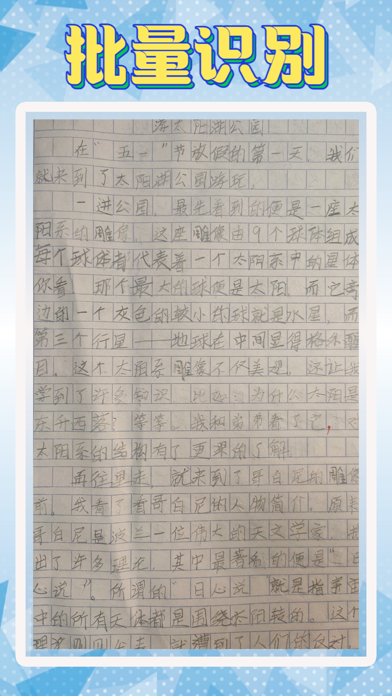 批量识别
游太阳湖公园
在“五一”节放假的第一天，我们
就来到了太阳湖公园游玩。
一进公园，最先看到的便是一座太
阳系的雕像，这座雕像由9个球体组成
每个球体都代表着一个太阳系中的星体
你看，那个最大的球便是太阳，而它旁
边的一个灰色的较小的球就是水星，而
第三个行星——地球在中间显得格外醒
目。这个太阳系雕像不仅美观，还让我
学到了许多知识，比如：为什么太阳是
东升西落？等等。我和弟弟看了它，对
太阳系的结构有了更深的了解。
再往里走，就来到了哥白尼的雕像
前。我看了看哥白尼的人物简介，原来
哥白尼是波兰一位伟大的天文学家，提
出了许多理论，其中最著名的便是“日
心说”。所谓的“日心说”就是指宇宙
中的所有天体都是围绕太阳转的。这个
就遭到了人们的反对